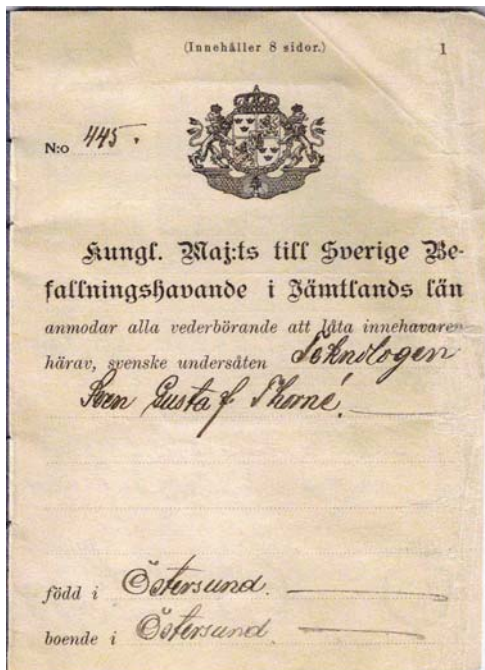 (Innehåller 8 sidor.) 1
N:o 445.
Kungl. Maj:ts till Sverige Be-
fallningshavande i Jämtlands län
anmodar alla vederbörande att låta innehavaren
härav, svenske undersåten Teknologen
Sven Gustaf Thorné.
född i Östersund.
boende i Östersund.